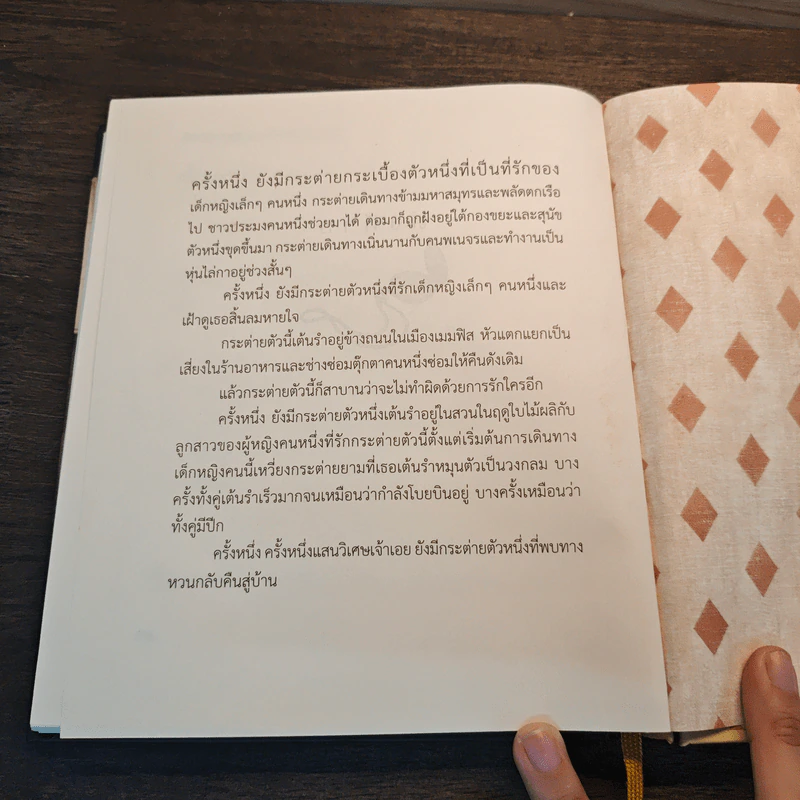 ครั้งหนึ่ง ยังมีกระต่ายกระเบื้องตัวหนึ่งที่เป็นที่รักของ
เด็กหญิงเล็กๆ คนหนึ่ง กระต่ายเดินทางข้ามมหาสมุทรและพลัดตกเรือ
ไป ชาวประมงคนหนึ่งช่วยมาได้ ต่อมาก็ถูกฝังอยู่ใต้กองขยะและสุนัข
ตัวหนึ่งขุดขึ้นมา กระต่ายเดินทางเนิ่นนานกับคนพเนจรและทำงานเป็น
หุ่นไล่กาอยู่ช่วงสั้นๆ
ครั้งหนึ่ง ยังมีกระต่ายตัวหนึ่งที่รักเด็กหญิงเล็กๆ คนหนึ่งและ
เฝ้าดูเธอสิ้นลมหายใจ
กระต่ายตัวนี้เต้นรำอยู่ข้างถนนในเมืองเมมฟิส หัวแตกแยกเป็น
เสี่ยงในร้านอาหารและช่างซ่อมตุ๊กตาคนหนึ่งซ่อมให้คืนดังเดิม
แล้วกระต่ายตัวนี้ก็สาบานว่าจะไม่ทำผิดด้วยการรักใครอีก
ครั้งหนึ่ง ยังมีกระต่ายตัวหนึ่งเต้นรำอยู่ในสวนในฤดูใบไม้ผลิกับ
ลูกสาวของผู้หญิงคนหนึ่งที่รักกระต่ายตัวนี้ตั้งแต่เริ่มต้นการเดินทาง
เด็กหญิงคนนี้เหวี่ยงกระต่ายยามที่เธอเต้นรำหมุนตัวเป็นวงกลม บาง
ครั้งทั้งคู่เต้นรำเร็วมากจนเหมือนว่ากำลังโบยบินอยู่ บางครั้งเหมือนว่า
ทั้งคู่มีปีก
ครั้งหนึ่ง ครั้งหนึ่งแสนวิเศษเจ้าเอย ยังมีกระต่ายตัวหนึ่งที่พบทาง
หวนกลับคืนสู่บ้าน